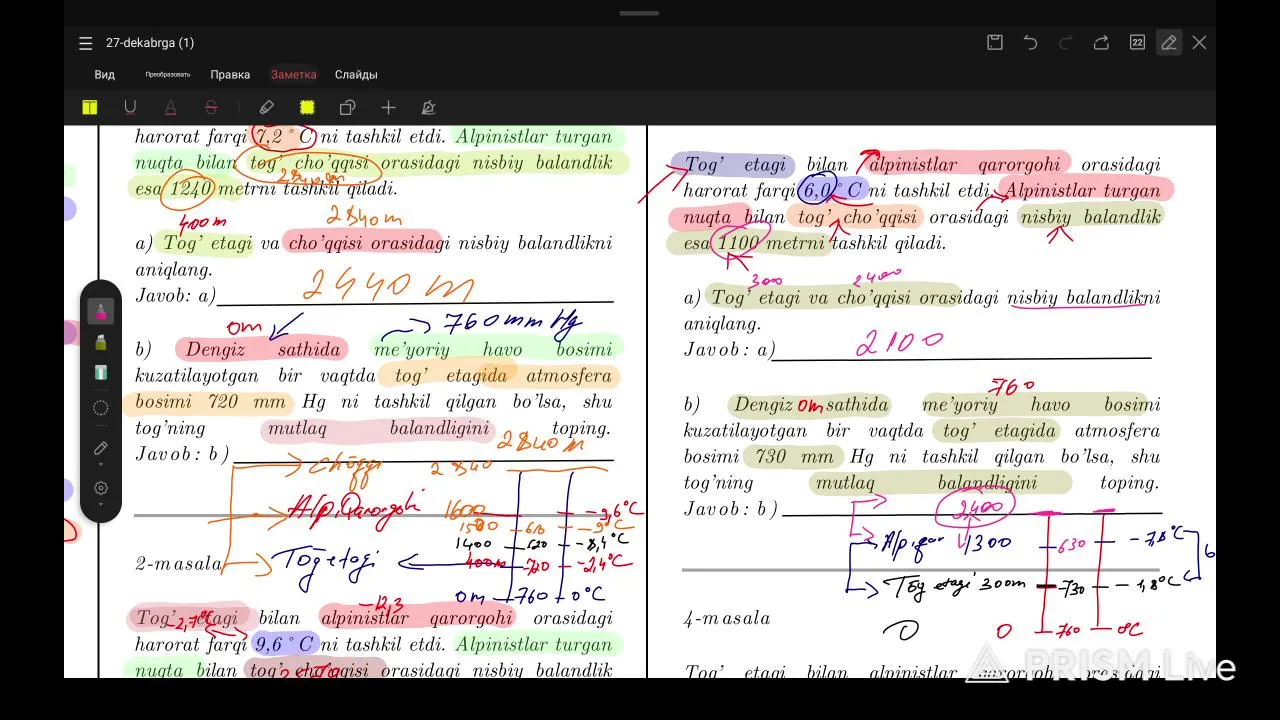 27-dekabrga (1)
22
Вид
Преобразовать
Правка
Заметка
Слайды
harorat farqi 7,2°C ni tashkil etdi. Alpinistlar turgan
nuqta bilan tog' cho'qqisi orasidagi nisbiy balandlik
esa 1240 metrni tashkil qiladi.
400m
2840m
a) Tog' etagi va cho'qqisi orasidagi nisbiy balandlikni
aniqlang.
Javob: a)
2440 m
0m
760mm Hg
b) Dengiz sathida me'yoriy havo bosimi
kuzatilayotgan bir vaqtda tog' etagida atmosfera
bosimi 720 mm Hg ni tashkil qilgan bo'lsa, shu
tog'ning mutlaq balandligini toping.
2840m
Javob: b)
2840
Alp. Qarorgohi
1600
-9,6°C
1500
610
-9°C
1400
-8,4°C
Tog etogi
400m
-720
-2,4°C
0m
760
0°C
2-masala
-12,3
Tog' etagi bilan alpinistlar qarorgohi orasidagi
-2,7°C
harorat farqi 9,6°C ni tashkil etdi. Alpinistlar turgan
nuqta bilan tog' cho'qqisi orasidagi nisbiy balandlik
Tog' etagi bilan alpinistlar qarorgohi orasidagi
harorat farqi 6,0°C ni tashkil etdi. Alpinistlar turgan
nuqta bilan tog' cho'qqisi orasidagi nisbiy balandlik
esa 1100 metrni tashkil qiladi.
300
2400
a) Tog' etagi va cho'qqisi orasidagi nisbiy balandlikni
aniqlang.
Javob: a)
2100
760
b) Dengiz 0m sathida me'yoriy havo bosimi
kuzatilayotgan bir vaqtda tog' etagida atmosfera
bosimi 730 mm Hg ni tashkil qilgan bo'lsa, shu
tog'ning mutlaq balandligini toping.
Javob: b)
2400
Alp. qar 1300
630
-7,8°C
6
Tog etagi 300m
730
-1,8°C
0
0
760
0°C
4-masala
Tog' etagi bilan alpinistlar qarorgohi orasidagi
PRISM Live